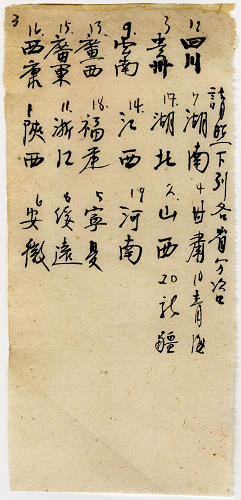 請照下列各省分次
12 四川 7 湖南 4 甘肅 10 青海
3 貴州 17 湖北 2 山西 20 新疆
9 雲南 14 江西 19 河南
13 廣西 18 福建 5 寧夏
15 廣東 11 浙江 8 綏遠
16 西康 1 陝西 6 安徽
3